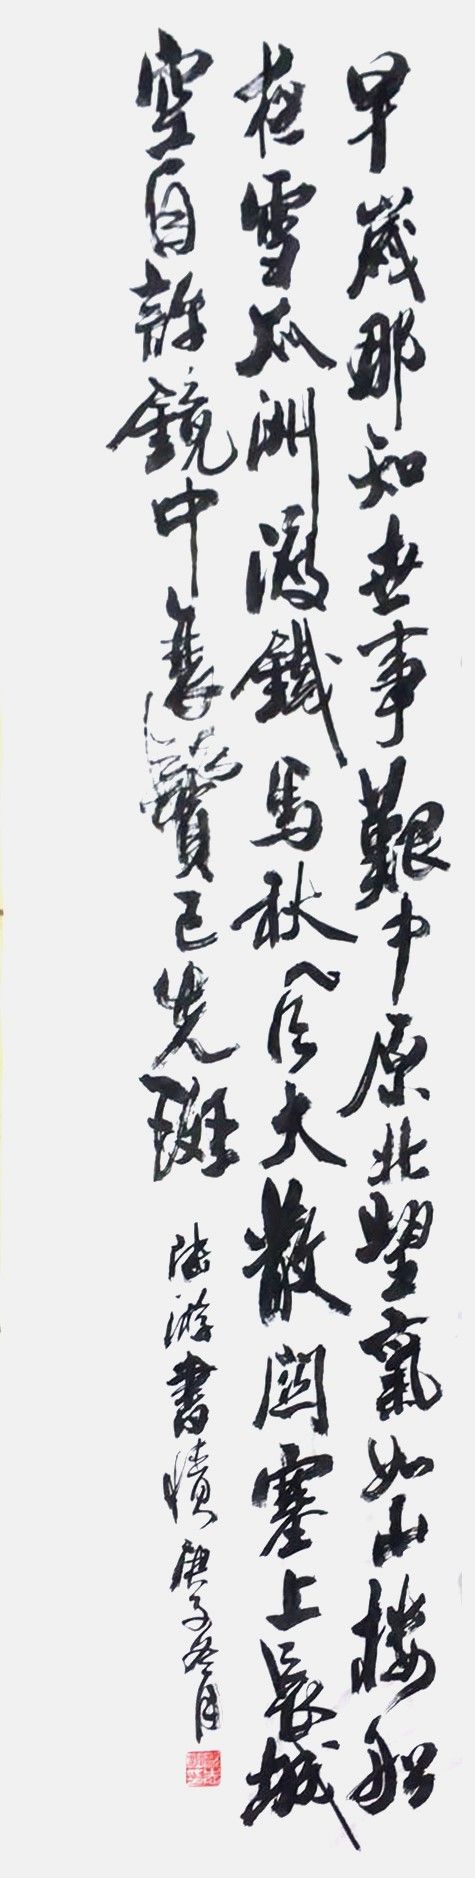 早歲那知世事艱中原北望氣如山樓船
夜雪瓜洲渡鐵馬秋風大散關塞上長城
空自許鏡中衰鬢已先斑
陸游書憤庚子冬月